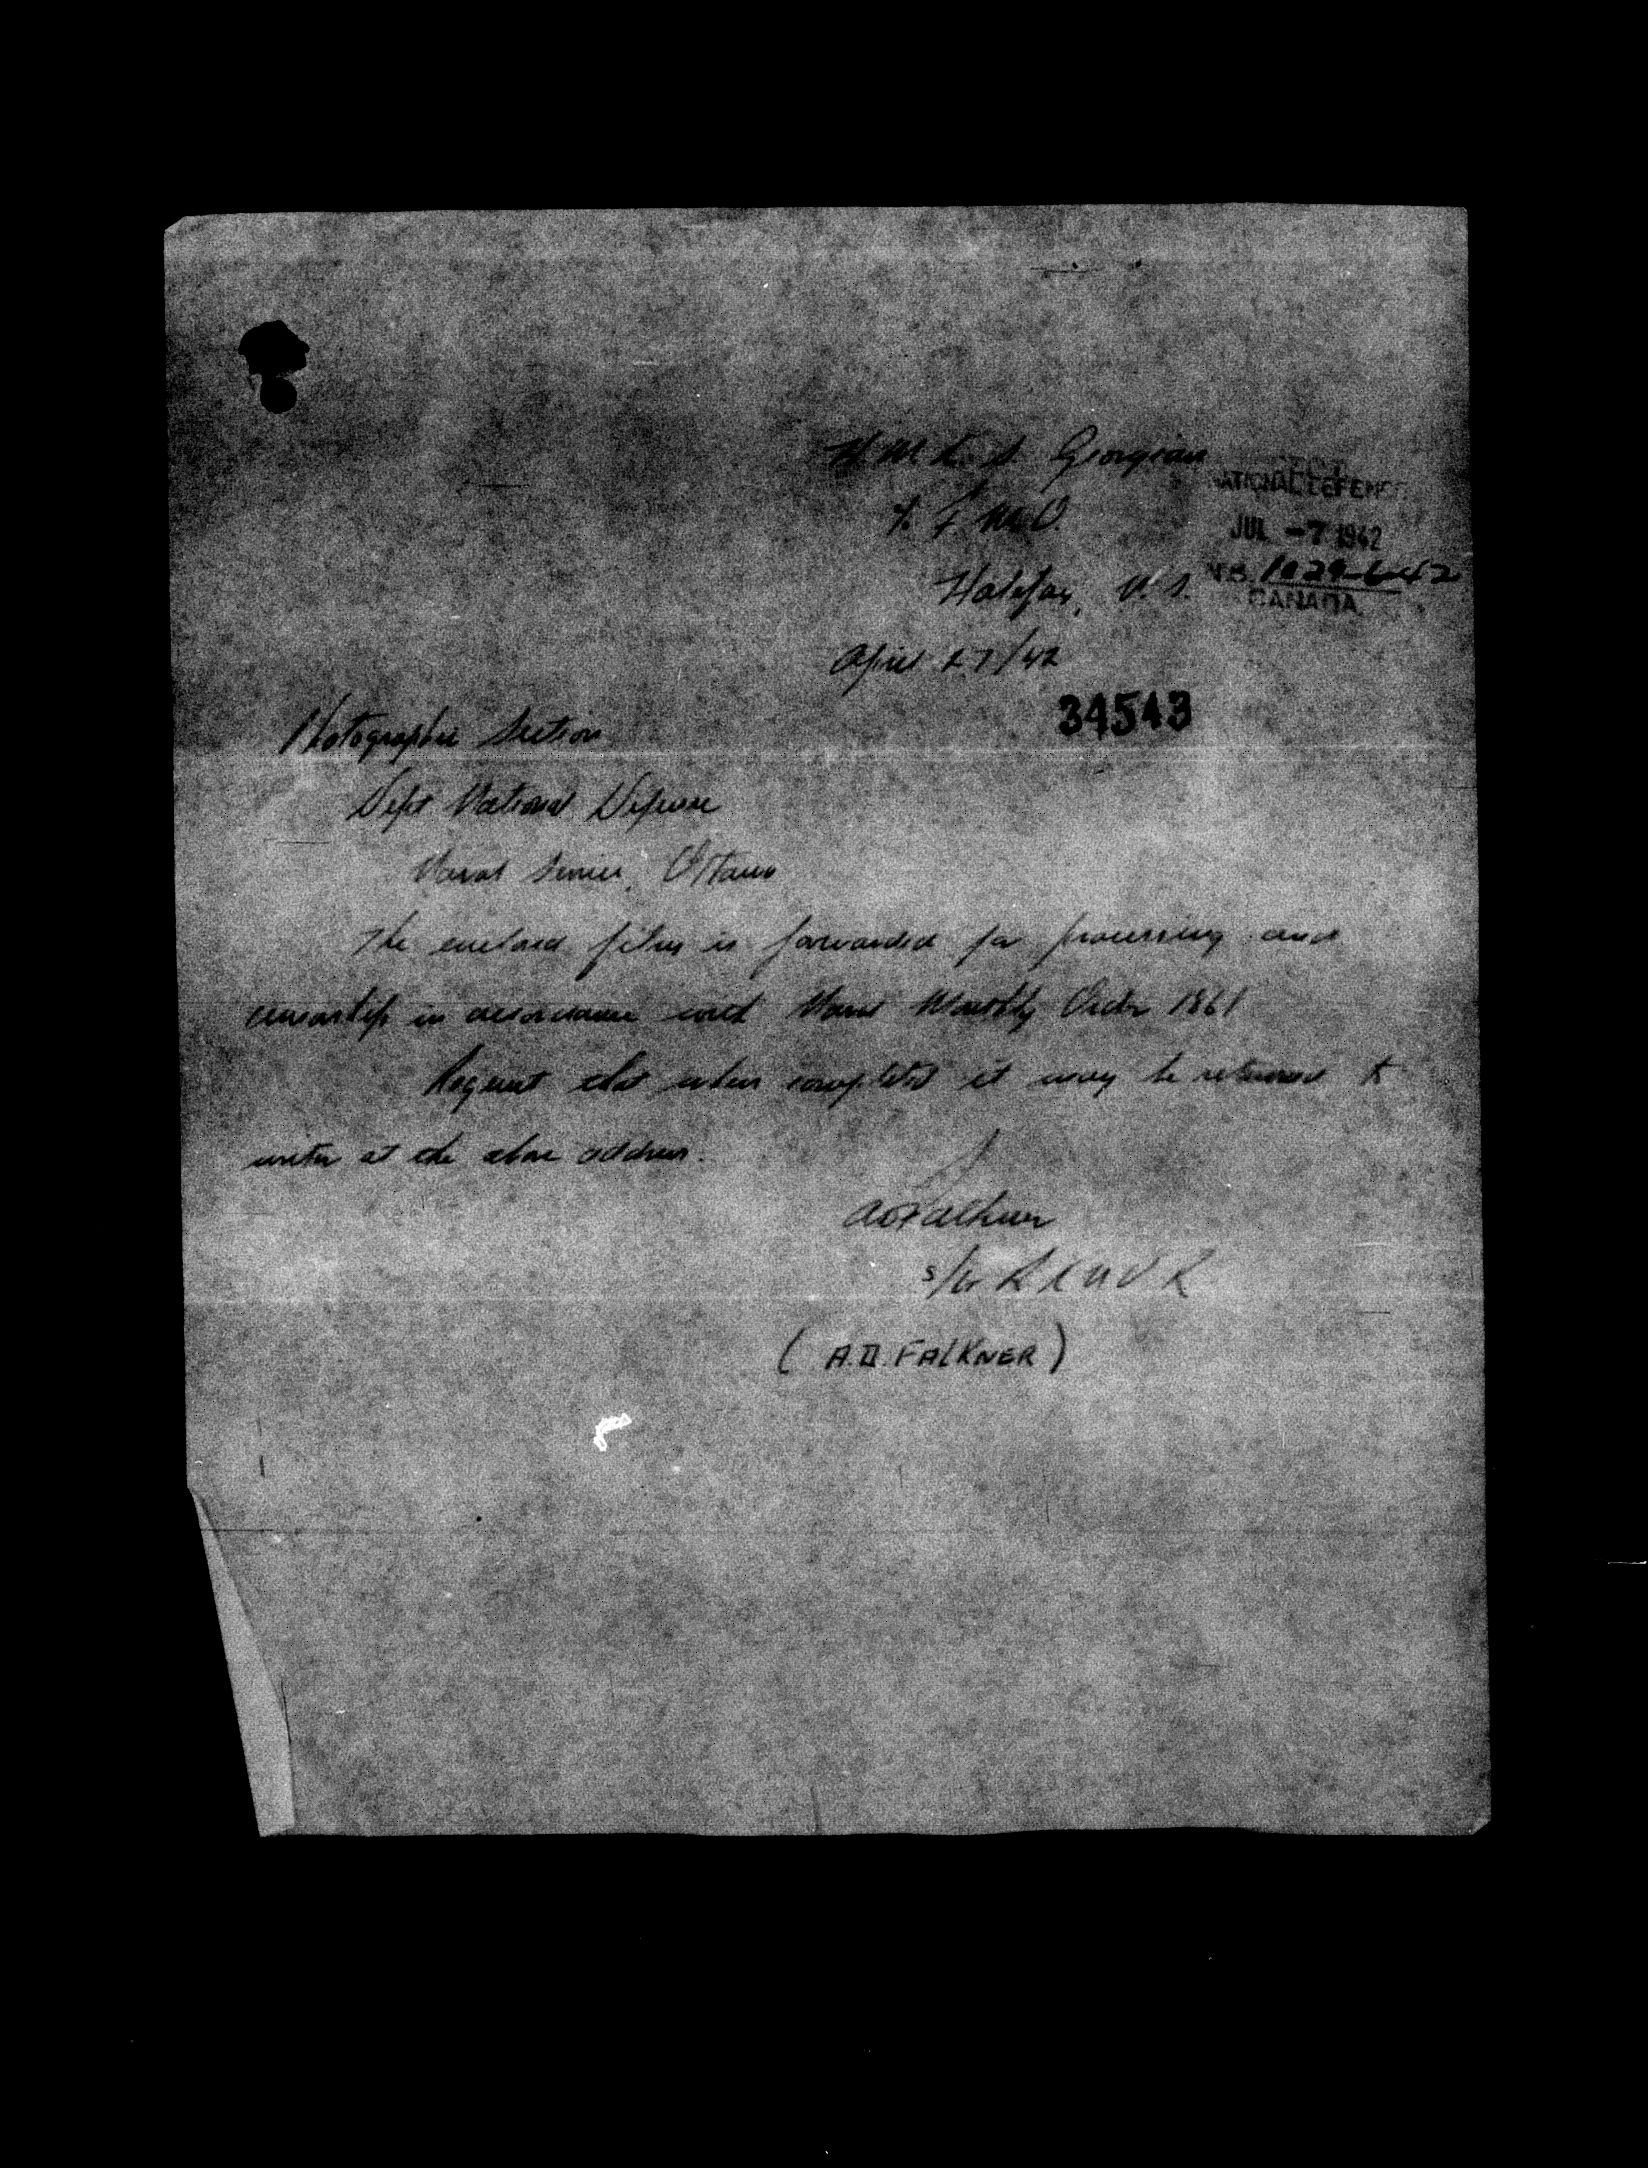 H.M.C.S. Georgian
% F.M.O.
Halifax, N.S.
DEPT.
NATIONAL DEFENCE
JUL -7 1942
N.S. 1029-6-42
CANADA
April 27/42
34543
Photographic Section
Dept National Defense
Naval Service, Ottawa
The enclosed film is forwarded for processing and
censorship in accordance with Naval Monthly Order 1861
Request that when completed it may be returned to
writer at the above address.
AD Falkner
S/Lt R C N V R
(A.D. FALKNER)